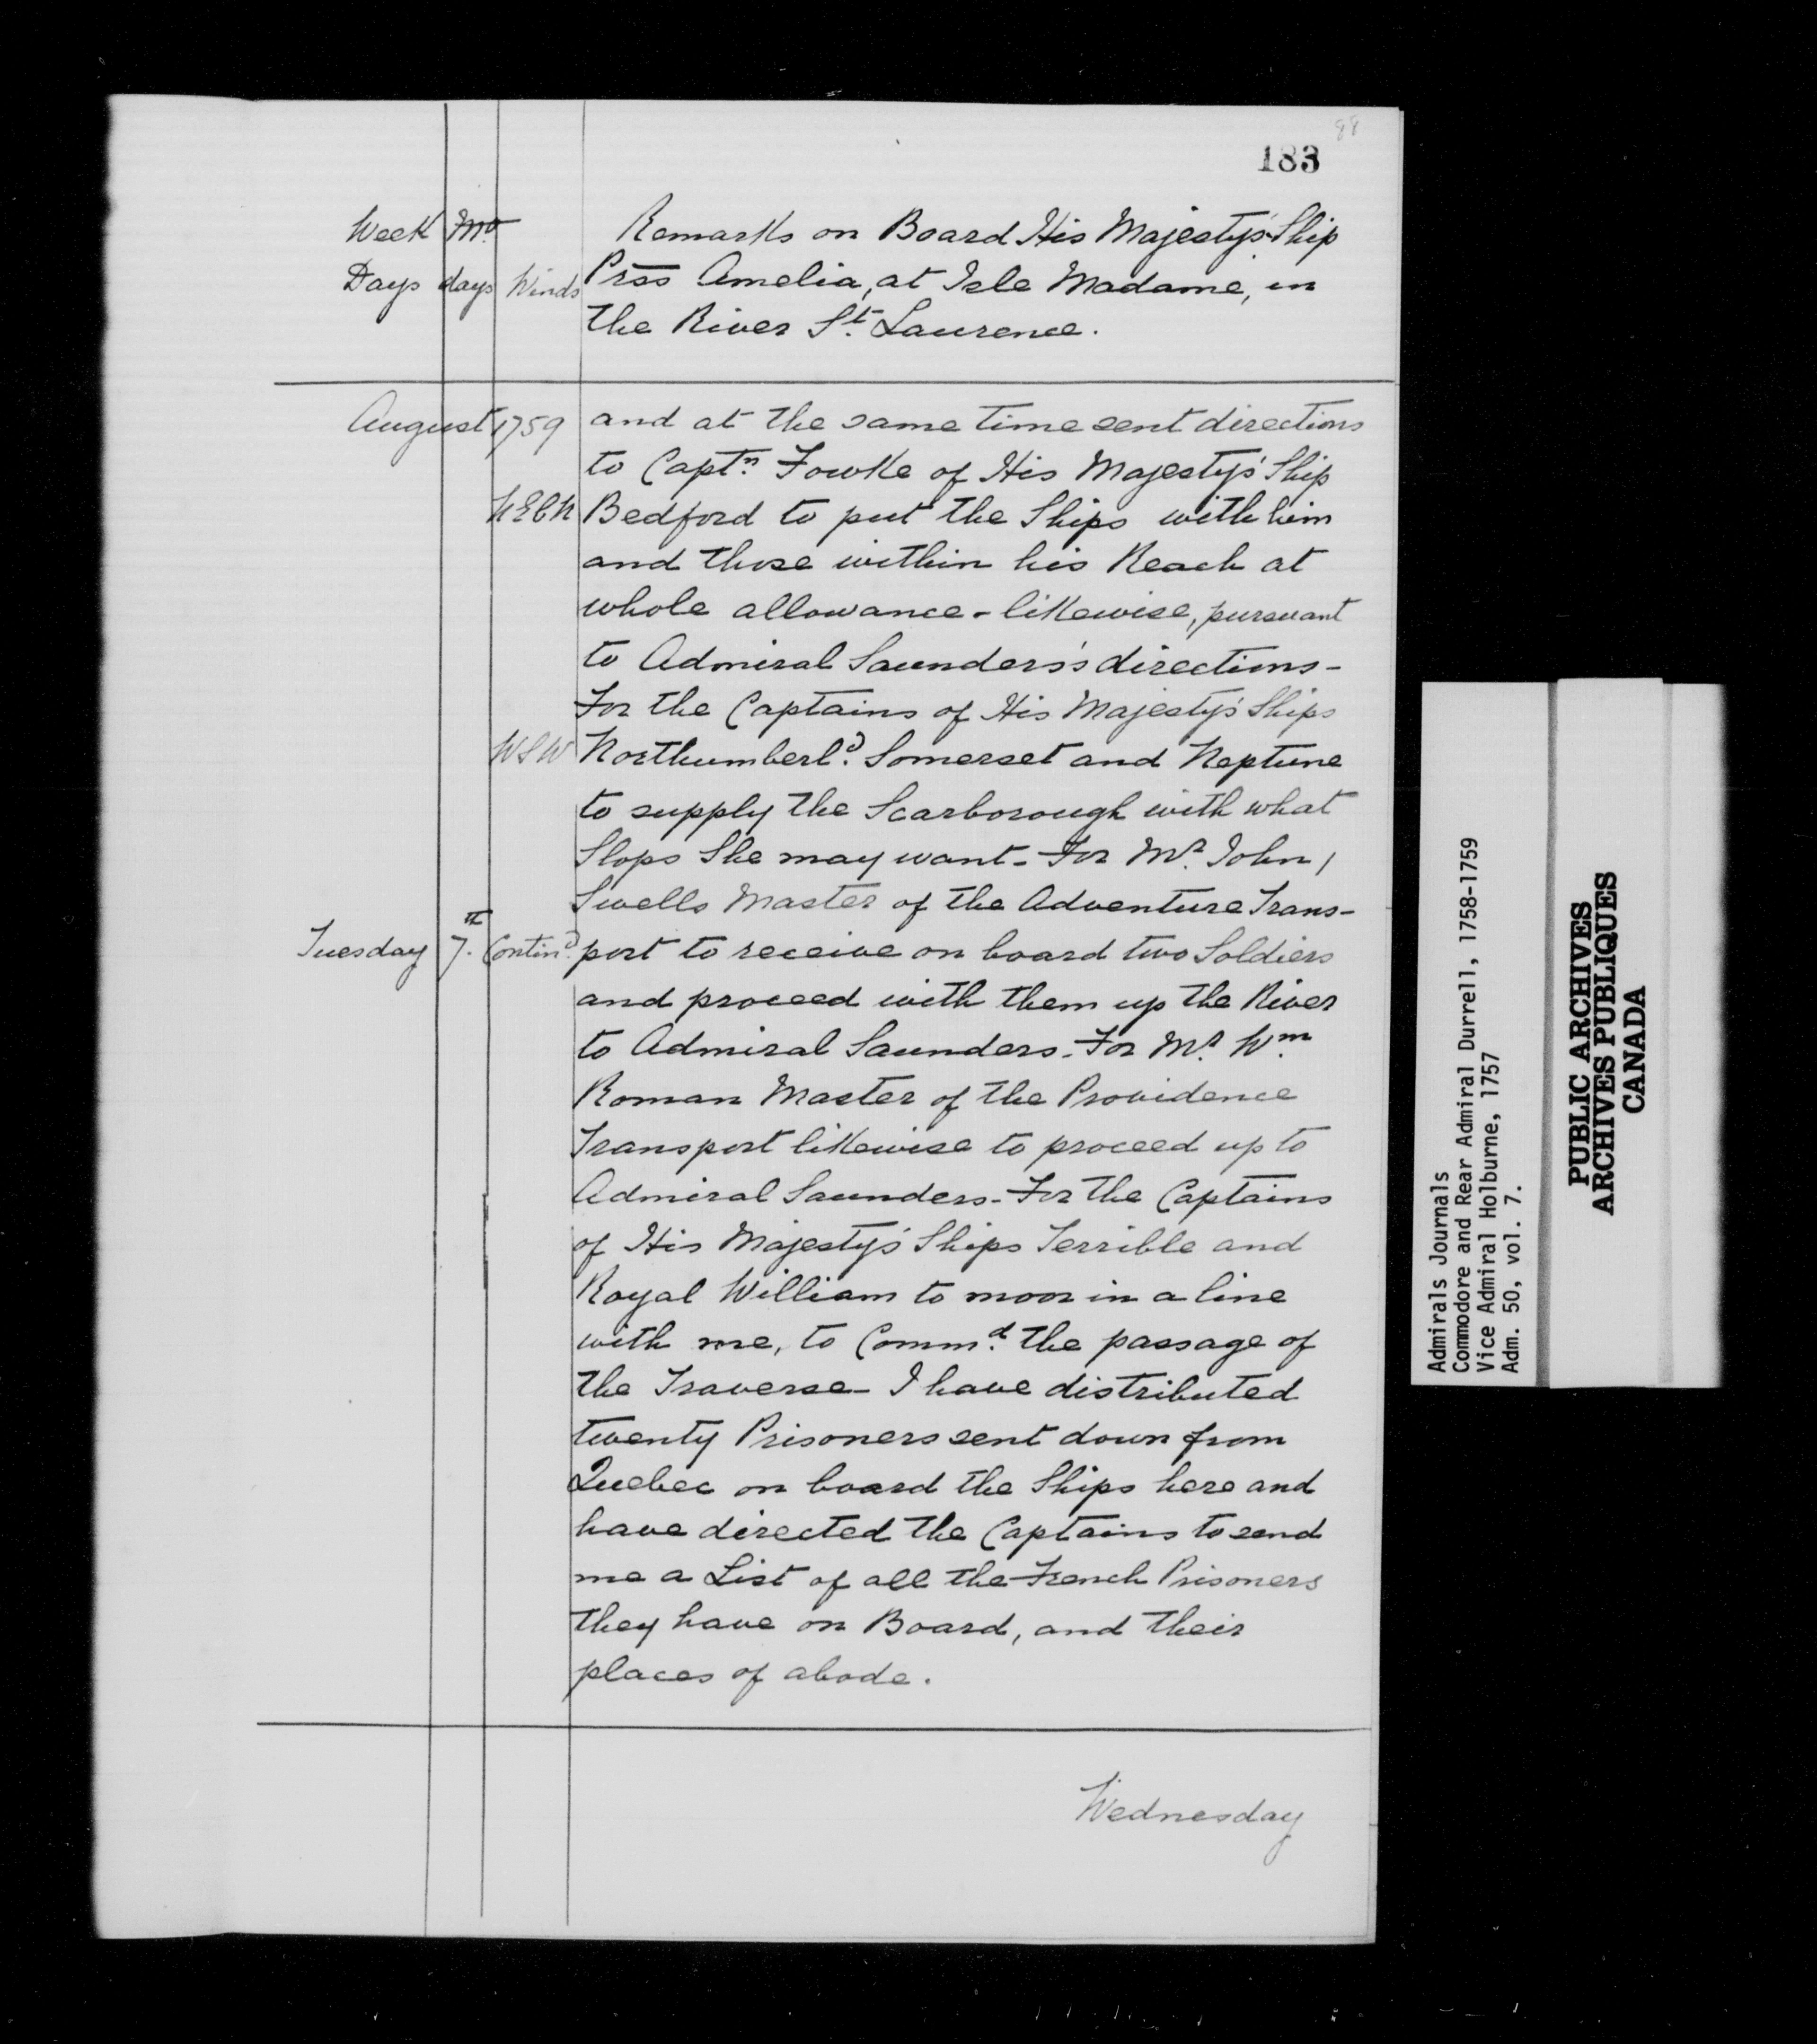 88
183
Week Mo.
Days days Winds
Remarks on Board His Majesty's Ship
Prss Amelia, at Isle Madame, in
the River St. Laurence.
August 1759 and at the same time sent directions
to Captn. Fowke of His Majesty's Ship
NEbN Bedford to put the Ships with him
and those within his Reach at
whole allowance - likewise, pursuant
to Admiral Saunders's directions -
For the Captains of His Majesty's Ships
WSW Northumberld. Somerset and Neptune
to supply the Scarborough with what
Slops She may want - For Mr. John
Swells Master of the Adventure Trans-
Tuesday 7th. Contind. port to receive on board two Soldiers
and proceed with them up the River
to Admiral Saunders - For Mr. Wm.
Roman Master of the Providence
Transport likewise to proceed up to
Admiral Saunders - For the Captains
of His Majesty's Ships Terrible and
Royal William to moor in a line
with me, to Commd. the passage of
the Traverse - I have distributed
twenty Prisoners sent down from
Quebec on board the Ships here and
have directed the Captains to send
me a List of all the French Prisoners
they have on Board, and their
places of abode.
Wednesday
Admirals Journals
Commodore and Rear Admiral Durrell, 1758-1759
Vice Admiral Holburne, 1757
Adm. 50, vol. 7.
PUBLIC ARCHIVES
ARCHIVES PUBLIQUES
CANADA